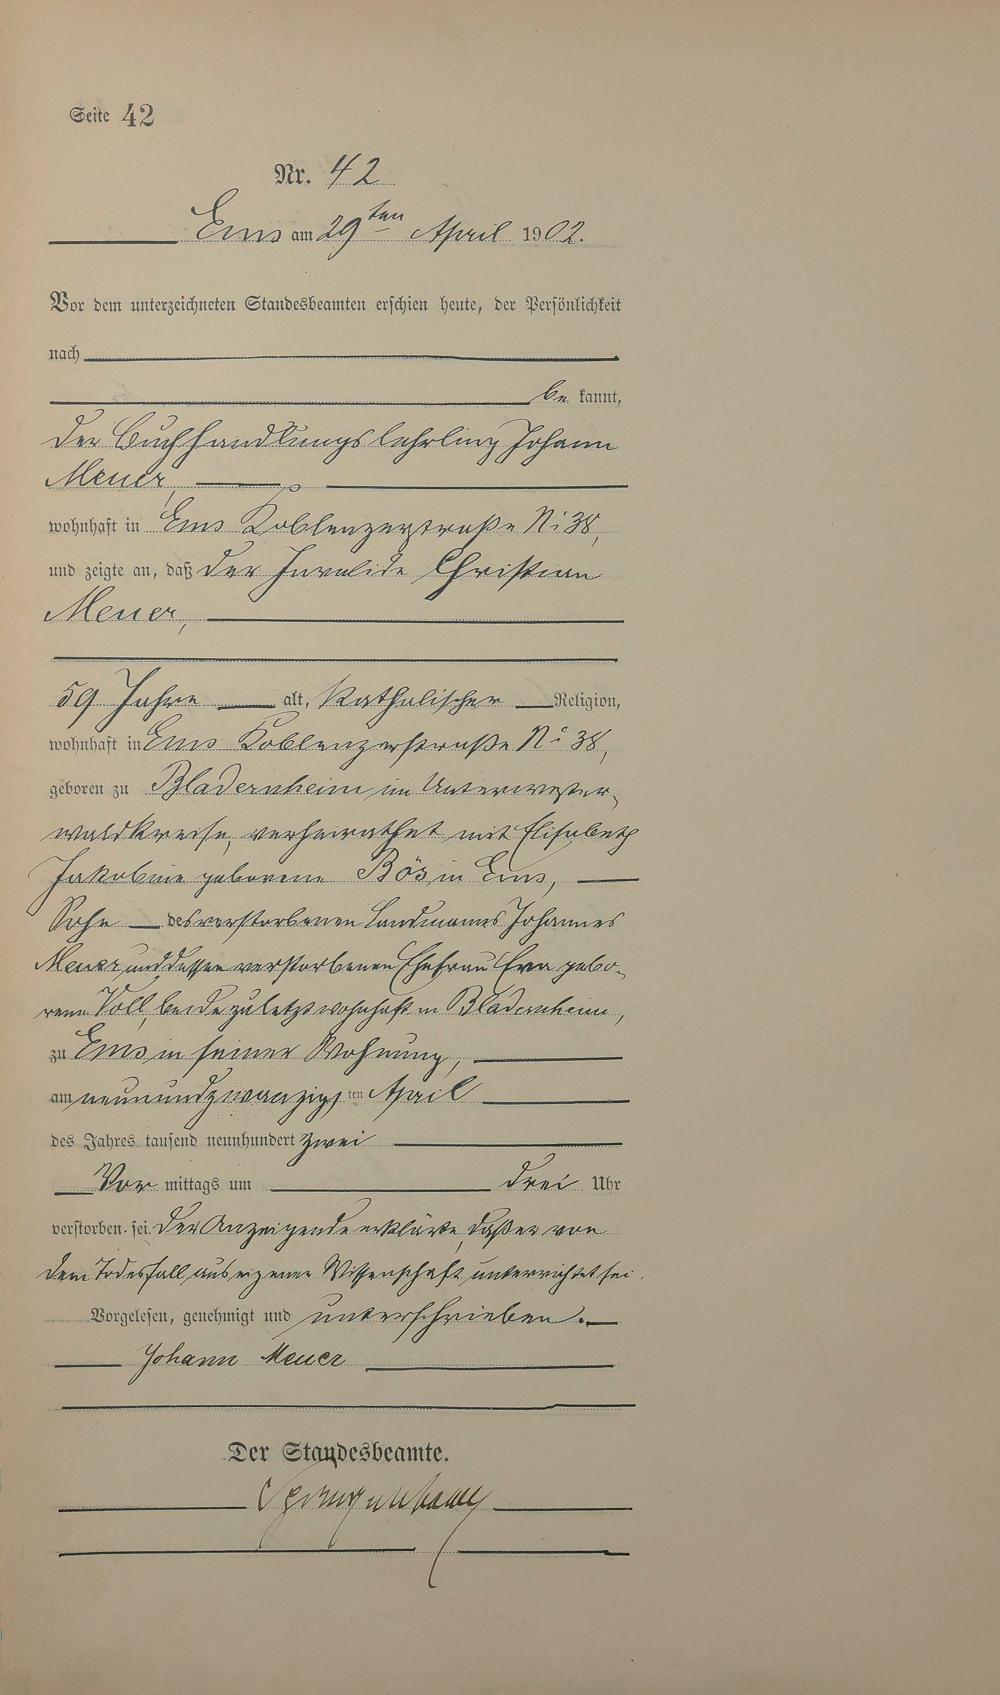 Seite 42
Nr. 42
Ems am 29ten April 1902.
Vor dem unterzeichneten Standesbeamten erschien heute, der Persönlichkeit
nach
be kannt,
der Buchhandlungslehrling Johann
Meuer,
wohnhaft in Ems Koblenzerstraße No 38,
und zeigte an, daß der Invalide Christian
Meuer,
59 Jahre alt, katholischer Religion,
wohnhaft in Ems Koblenzerstraße No 38,
geboren zu Bladernheim im Unterwester-
waldkreise, verheirathet mit Elisabeth
Jakobine geborene Bös in Ems,
Sohn des verstorbenen Landmannes Johannes
Meuer und dessen verstorbenen Ehefrau Eva gebo-
rene Voll, beide zuletzt wohnhaft in Bladernheim,
zu Ems in seiner Wohnung,
am neunundzwanzigsten April
des Jahres tausend neunhundert zwei
Vor mittags um drei Uhr
verstorben sei. Der Anzeigende erklärte, daß er von
dem Todesfall aus eigener Wissenschaft unterrichtet sei.
Vorgelesen, genehmigt und unterschrieben.
Johann Meuer
Der Standesbeamte.